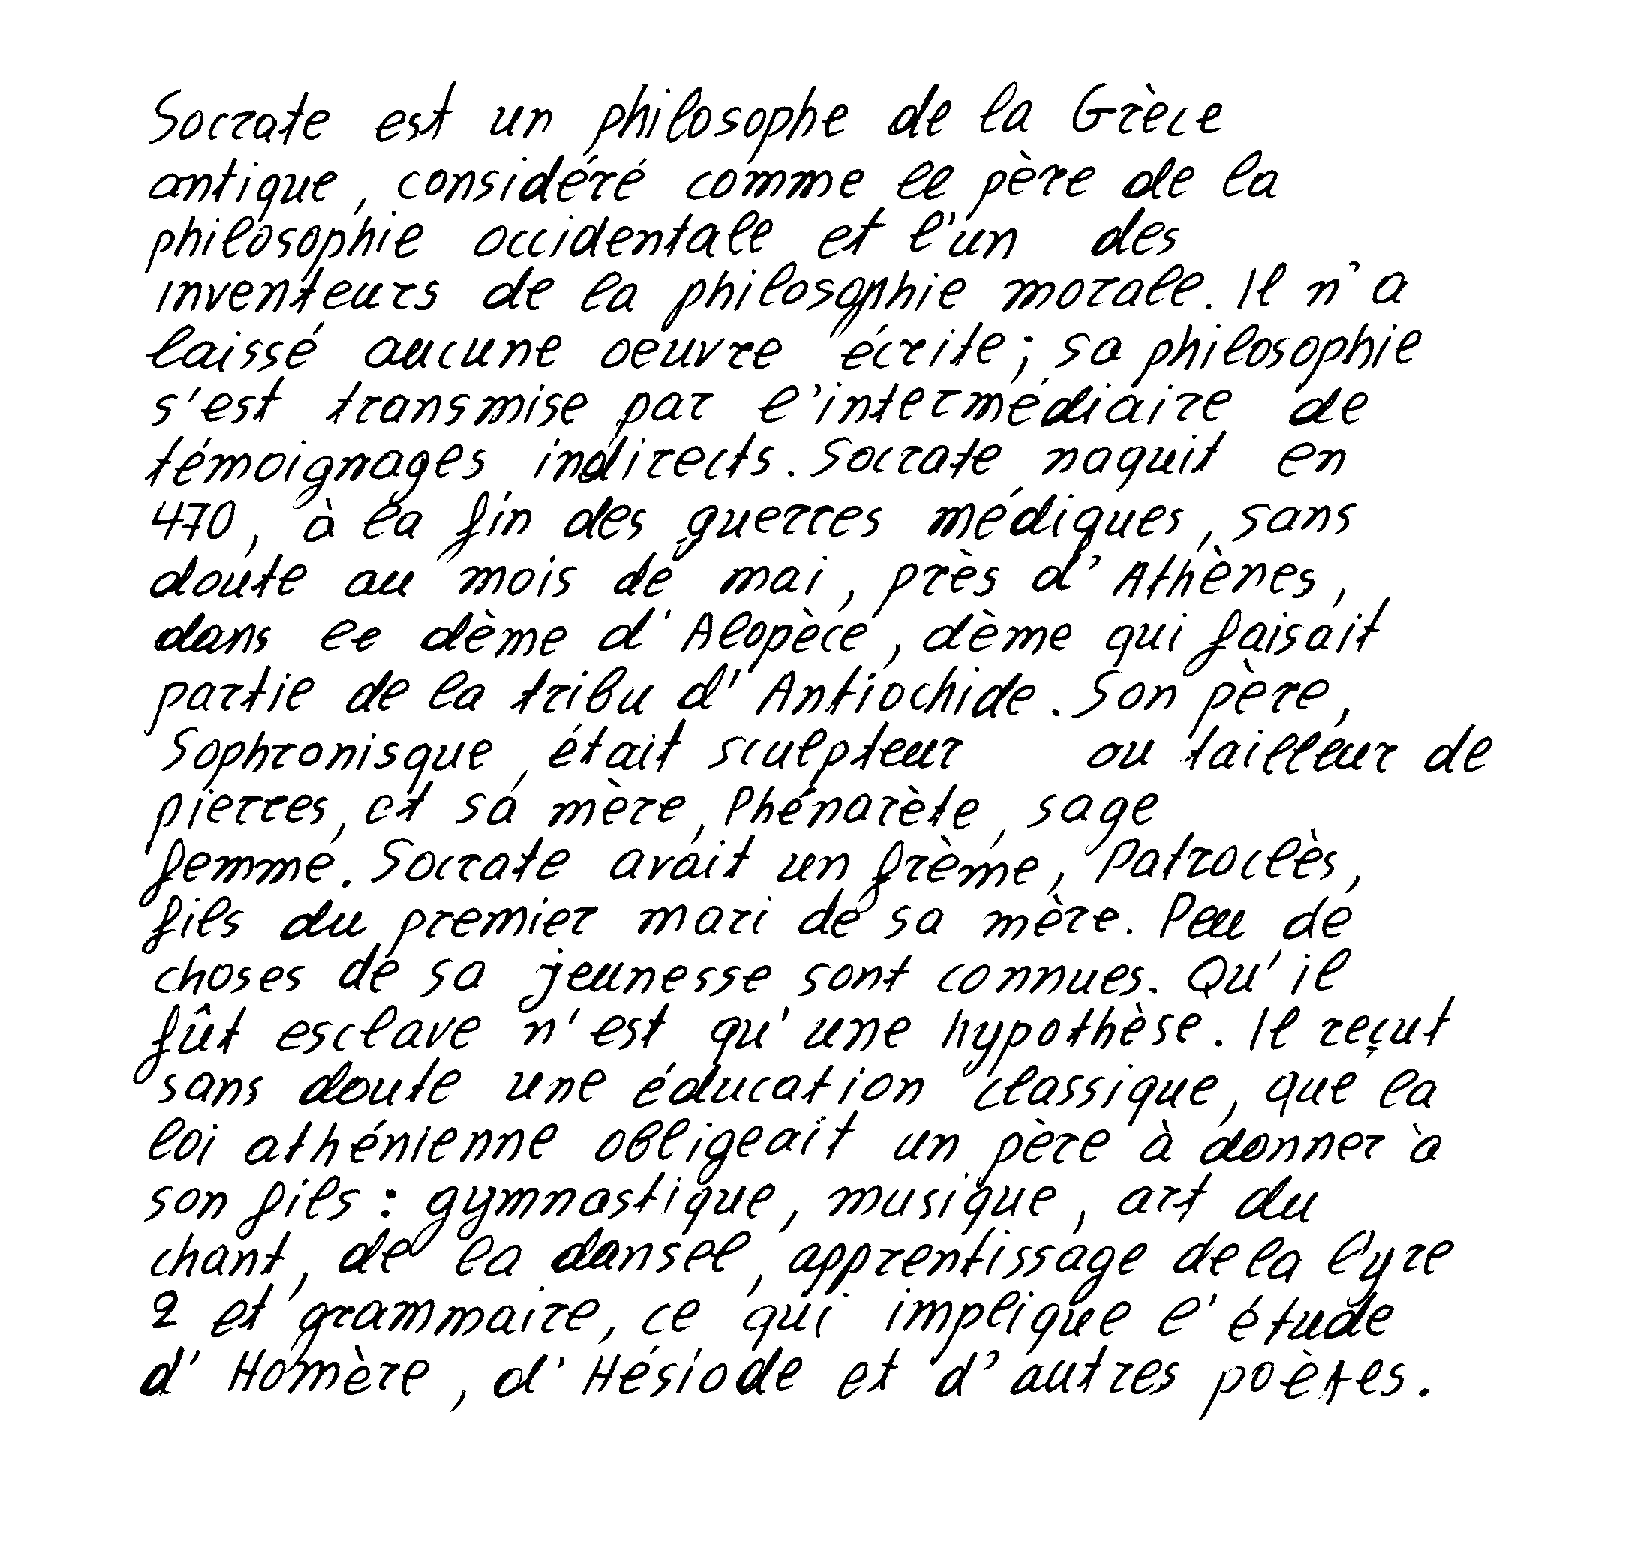 Socrate est un philosophe de la Grèce
antique, considéré comme le père de la
philosophie occidentale et l'un des
inventeurs de la philosophie morale. Il n'a
laissé aucune oeuvre écrite; sa philosophie
s'est transmise par l'intermédiaire de
témoignages indirects. Socrate naquit en
470, à la fin des guerres médiques, sans
doute au mois de mai, près d'Athènes,
dans le dème d'Alopèce, dème qui faisait
partie de la tribu d'Antiochide. Son père,
Sophronisque, était sculpteur ou tailleur de
pierres, et sa mère, Phénarète, sage
femme. Socrate avait un frème, Patroclès,
fils du premier mari de sa mère. Peu de
choses de sa jeunesse sont connues. Qu'il
fût esclave n'est qu'une hypothèse. Il reçut
sans doute une éducation classique, que la
loi athénienne obligeait un père à donner à
son fils : gymnastique, musique, art du
chant, de la dansel, apprentissage de la lyre
2 et grammaire, ce qui implique l'étude
d'Homère, d'Hésiode et d'autres poètes.